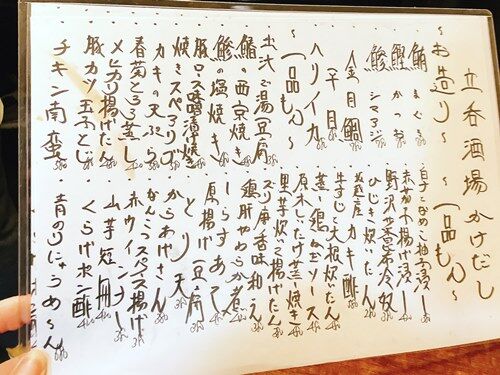 立呑酒場かけだし
〜お造り〜
鮪 まぐろ
鰹 かつお
鯵 シマアジ
金目鯛
平目
ハリイカ
〜一品もん〜
出汁で湯豆腐
鮨の西京焼き
鯵の塩焼き
豚ロース味噌漬け焼き
焼きスペアリブ
カキの天ぷら
春菊とろろ蒸し
メヒカリ揚げたん
豚カツ玉子とじ
チキン南蛮
〜一品もん〜
白子となめこ柚お浸し
赤茄子揚げ浸し
野沢菜冷奴
ひじき炊いたん
カキ酢
生すじ大根炊いたん
蒸し鶏ねぎソース
原木しいたけ蒸し焼き
里芋炊いて揚げたん
ズリ唐香味和え
鶏肝やわらか煮
しらすあて
厚揚げ豆腐
とり天
からあげさん
なんこつスパイス揚げ
赤ウインナー
山芋短冊
くらげポン酢
青のりにゅうめん